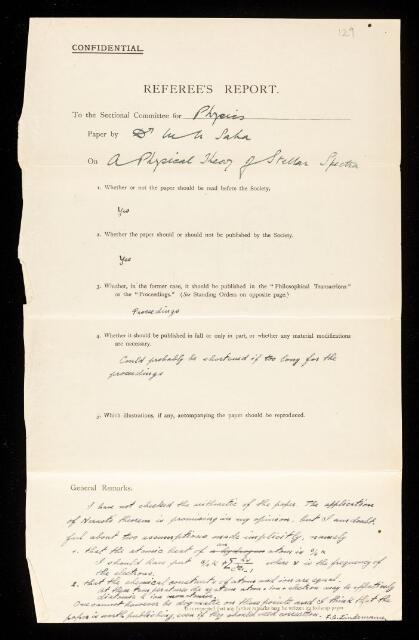 129
CONFIDENTIAL.
REFEREE'S REPORT.
To the Sectional Committee for Physics
Paper by Dr M N Saha
On A Physical Theory of Stellar Spectra
1. Whether or not the paper should be read before the Society.
Yes
2. Whether the paper should or should not be published by the Society.
Yes
3. Whether, in the former case, it should be published in the "Philosophical Transactions"
or the "Proceedings." (See Standing Orders on opposite page.)
Proceedings
4. Whether it should be published in full or only in part, or whether any material modifications
are necessary.
Could probably be shortened if too long for the
proceedings
5. Which illustrations, if any, accompanying the paper should be reproduced.
General Remarks.
I have not checked the arithmetic of the paper. The application
of Nernsts theorem is promising in my opinion, but I am doubt
ful about two assumptions made implicitly, namely
1. that the atomic heat of an atom is
I should have put where ν is the frequency of
the electrons.
2. that the chemical constants of atom and ion are equal.
at these temperatures the system atom ion + electron may be
One cannot however be dogmatic on these points and I think that the
paper is worth publishing even if they should need correction.
F.A. Lindemann